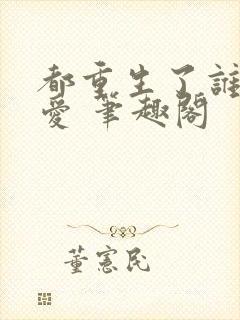 都重生了誰
愛 筆趣閣
董憲民